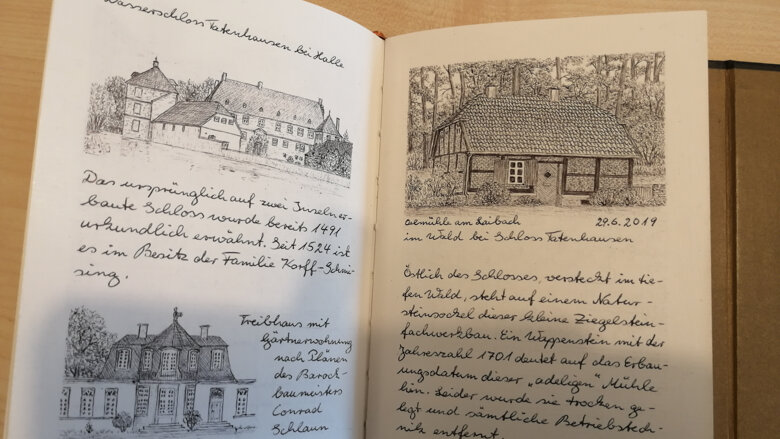 Wasserschloss Tatenhausen bei Halle
Das ursprünglich auf zwei Inseln er-
baute Schloss wurde bereits 1491
urkundlich erwähnt. Seit 1524 ist
es im Besitz der Familie Korff-Schmi-
sing.
Treibhaus mit
Gärtnerwohnung
nach Plänen
des Barock-
baumeisters
Conrad
Schlaun
Oelmühle am Laibach 29.6.2019
im Wald bei Schloss Tatenhausen
Östlich des Schlosses, versteckt im tie-
fen Wald, steht auf einem Natur-
steinsockel dieser kleine Ziegelstein-
fachwerkbau. Ein Wappenstein mit der
Jahreszahl 1701 deutet auf das Erbau-
ungsdatum dieser „adeligen" Mühle
hin. Leider wurde sie trocken ge-
legt und sämtliche Betriebstech-
nik entfernt.